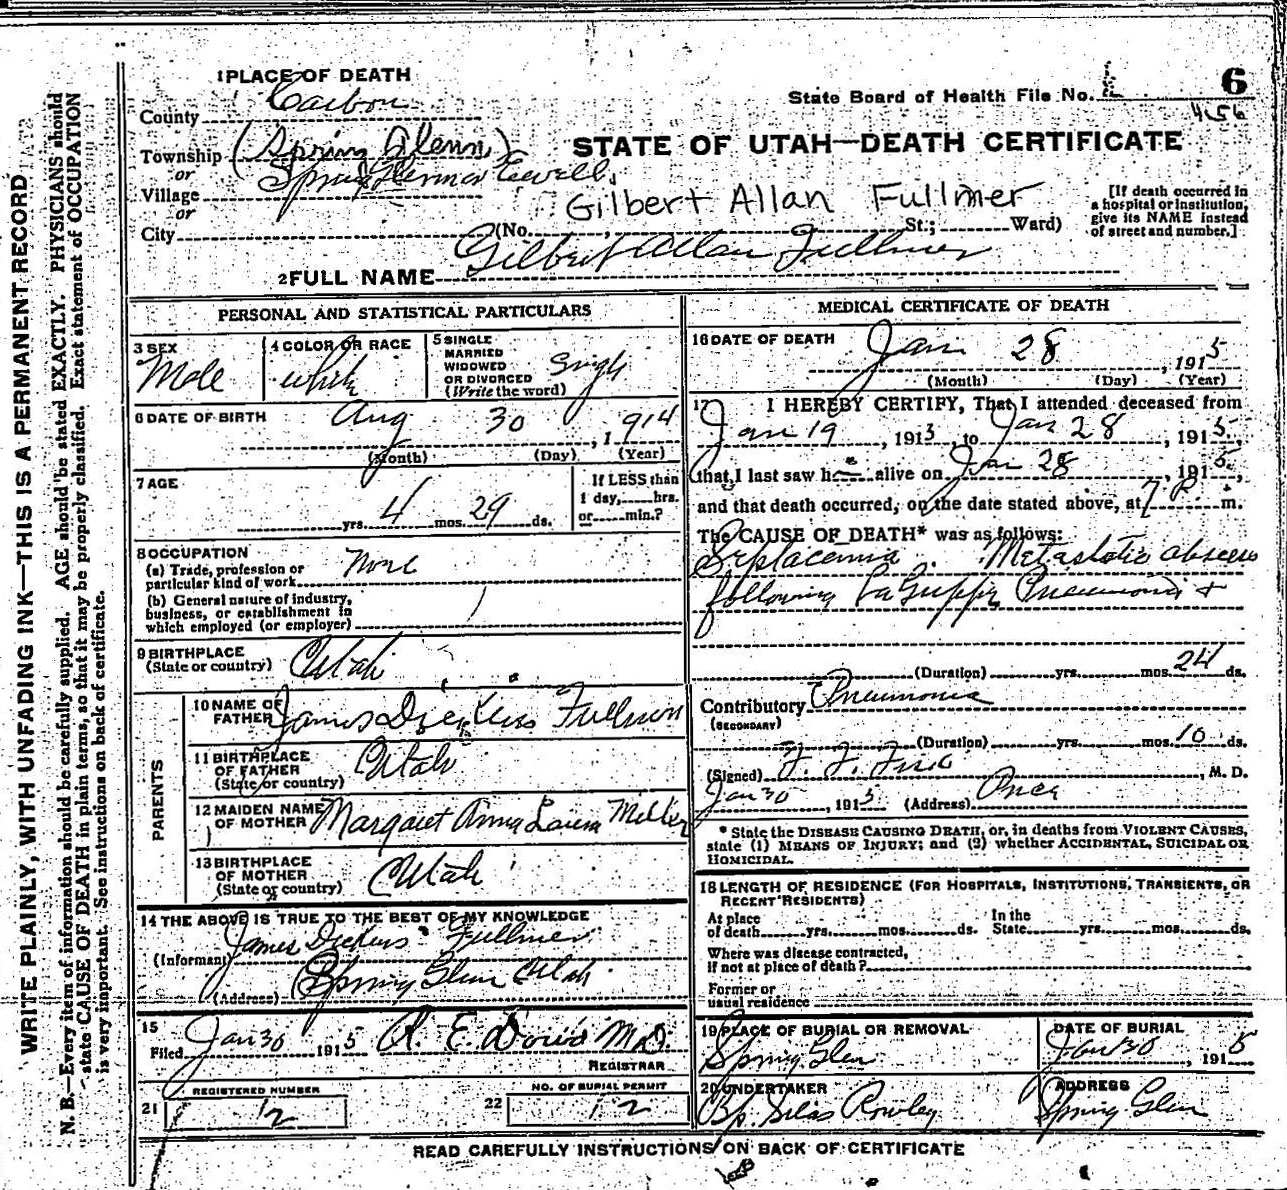 1 PLACE OF DEATH
County Carbon
State Board of Health File No. 6
456
Township (Spring Glenn)
or
Village Spring Glenn
or
City
STATE OF UTAH—DEATH CERTIFICATE
Gilbert Allan Fullmer
(No. St.; Ward)
[If death occurred in
a hospital or institution,
give its NAME instead
of street and number.]
2 FULL NAME Gilbert Allan Fullmer
PERSONAL AND STATISTICAL PARTICULARS
3 SEX
Male
4 COLOR OR RACE
White
5 SINGLE
MARRIED
WIDOWED
OR DIVORCED
(Write the word)
Single
6 DATE OF BIRTH
Aug 30, 1914
(Month) (Day) (Year)
7 AGE
yrs. 4 mos. 29 ds.
If LESS than
1 day, hrs.
or min.?
8 OCCUPATION
(a) Trade, profession or
particular kind of work None
(b) General nature of industry,
business, or establishment in
which employed (or employer)
9 BIRTHPLACE
(State or country) Utah
PARENTS
10 NAME OF
FATHER James Dickens Fullmer
11 BIRTHPLACE
OF FATHER
(State or country) Utah
12 MAIDEN NAME
OF MOTHER Margaret Anna Miller
13 BIRTHPLACE
OF MOTHER
(State or country) Utah
14 THE ABOVE IS TRUE TO THE BEST OF MY KNOWLEDGE
(Informant) James Dickens Fullmer
(Address) Spring Glen Utah
15
Filed Jan 30 1915 R. E. M.D.
REGISTRAR
REGISTERED NUMBER
21 12
NO. OF BURIAL PERMIT
22 12
MEDICAL CERTIFICATE OF DEATH
16 DATE OF DEATH
Jan 28, 1915
(Month) (Day) (Year)
17 I HEREBY CERTIFY, That I attended deceased from
Jan 19, 1915, to Jan 28, 1915,
that I last saw h alive on Jan 28, 1915,
and that death occurred, on the date stated above, at 7 P. m.
The CAUSE OF DEATH* was as follows:
Septacemia. Metastatic abscess
following LaGrippe Pneumonia +
(Duration) yrs. mos. 24 ds.
Contributory Pneumonia
(SECONDARY)
(Duration) yrs. mos. 10 ds.
(Signed) F. F. Fisk, M. D.
Jan 30, 1915 (Address) Price
* State the DISEASE CAUSING DEATH, or, in deaths from VIOLENT CAUSES,
state (1) MEANS OF INJURY; and (2) whether ACCIDENTAL, SUICIDAL OR
HOMICIDAL.
18 LENGTH OF RESIDENCE (FOR HOSPITALS, INSTITUTIONS, TRANSIENTS, OR
RECENT RESIDENTS)
At place
of death yrs. mos. ds.
In the
State yrs. mos. ds.
Where was disease contracted,
if not at place of death?
Former or
usual residence
19 PLACE OF BURIAL OR REMOVAL
Spring Glen
DATE OF BURIAL
Jan 30, 1915
20 UNDERTAKER
Bp. Silas Rowley
ADDRESS
Spring Glen
READ CAREFULLY INSTRUCTIONS ON BACK OF CERTIFICATE
WRITE PLAINLY, WITH UNFADING INK—THIS IS A PERMANENT RECORD
N. B.—Every item of information should be carefully supplied. AGE should be stated EXACTLY. PHYSICIANS should
state CAUSE OF DEATH in plain terms, so that it may be properly classified. Exact statement of OCCUPATION
is very important. See instructions on back of certificate.